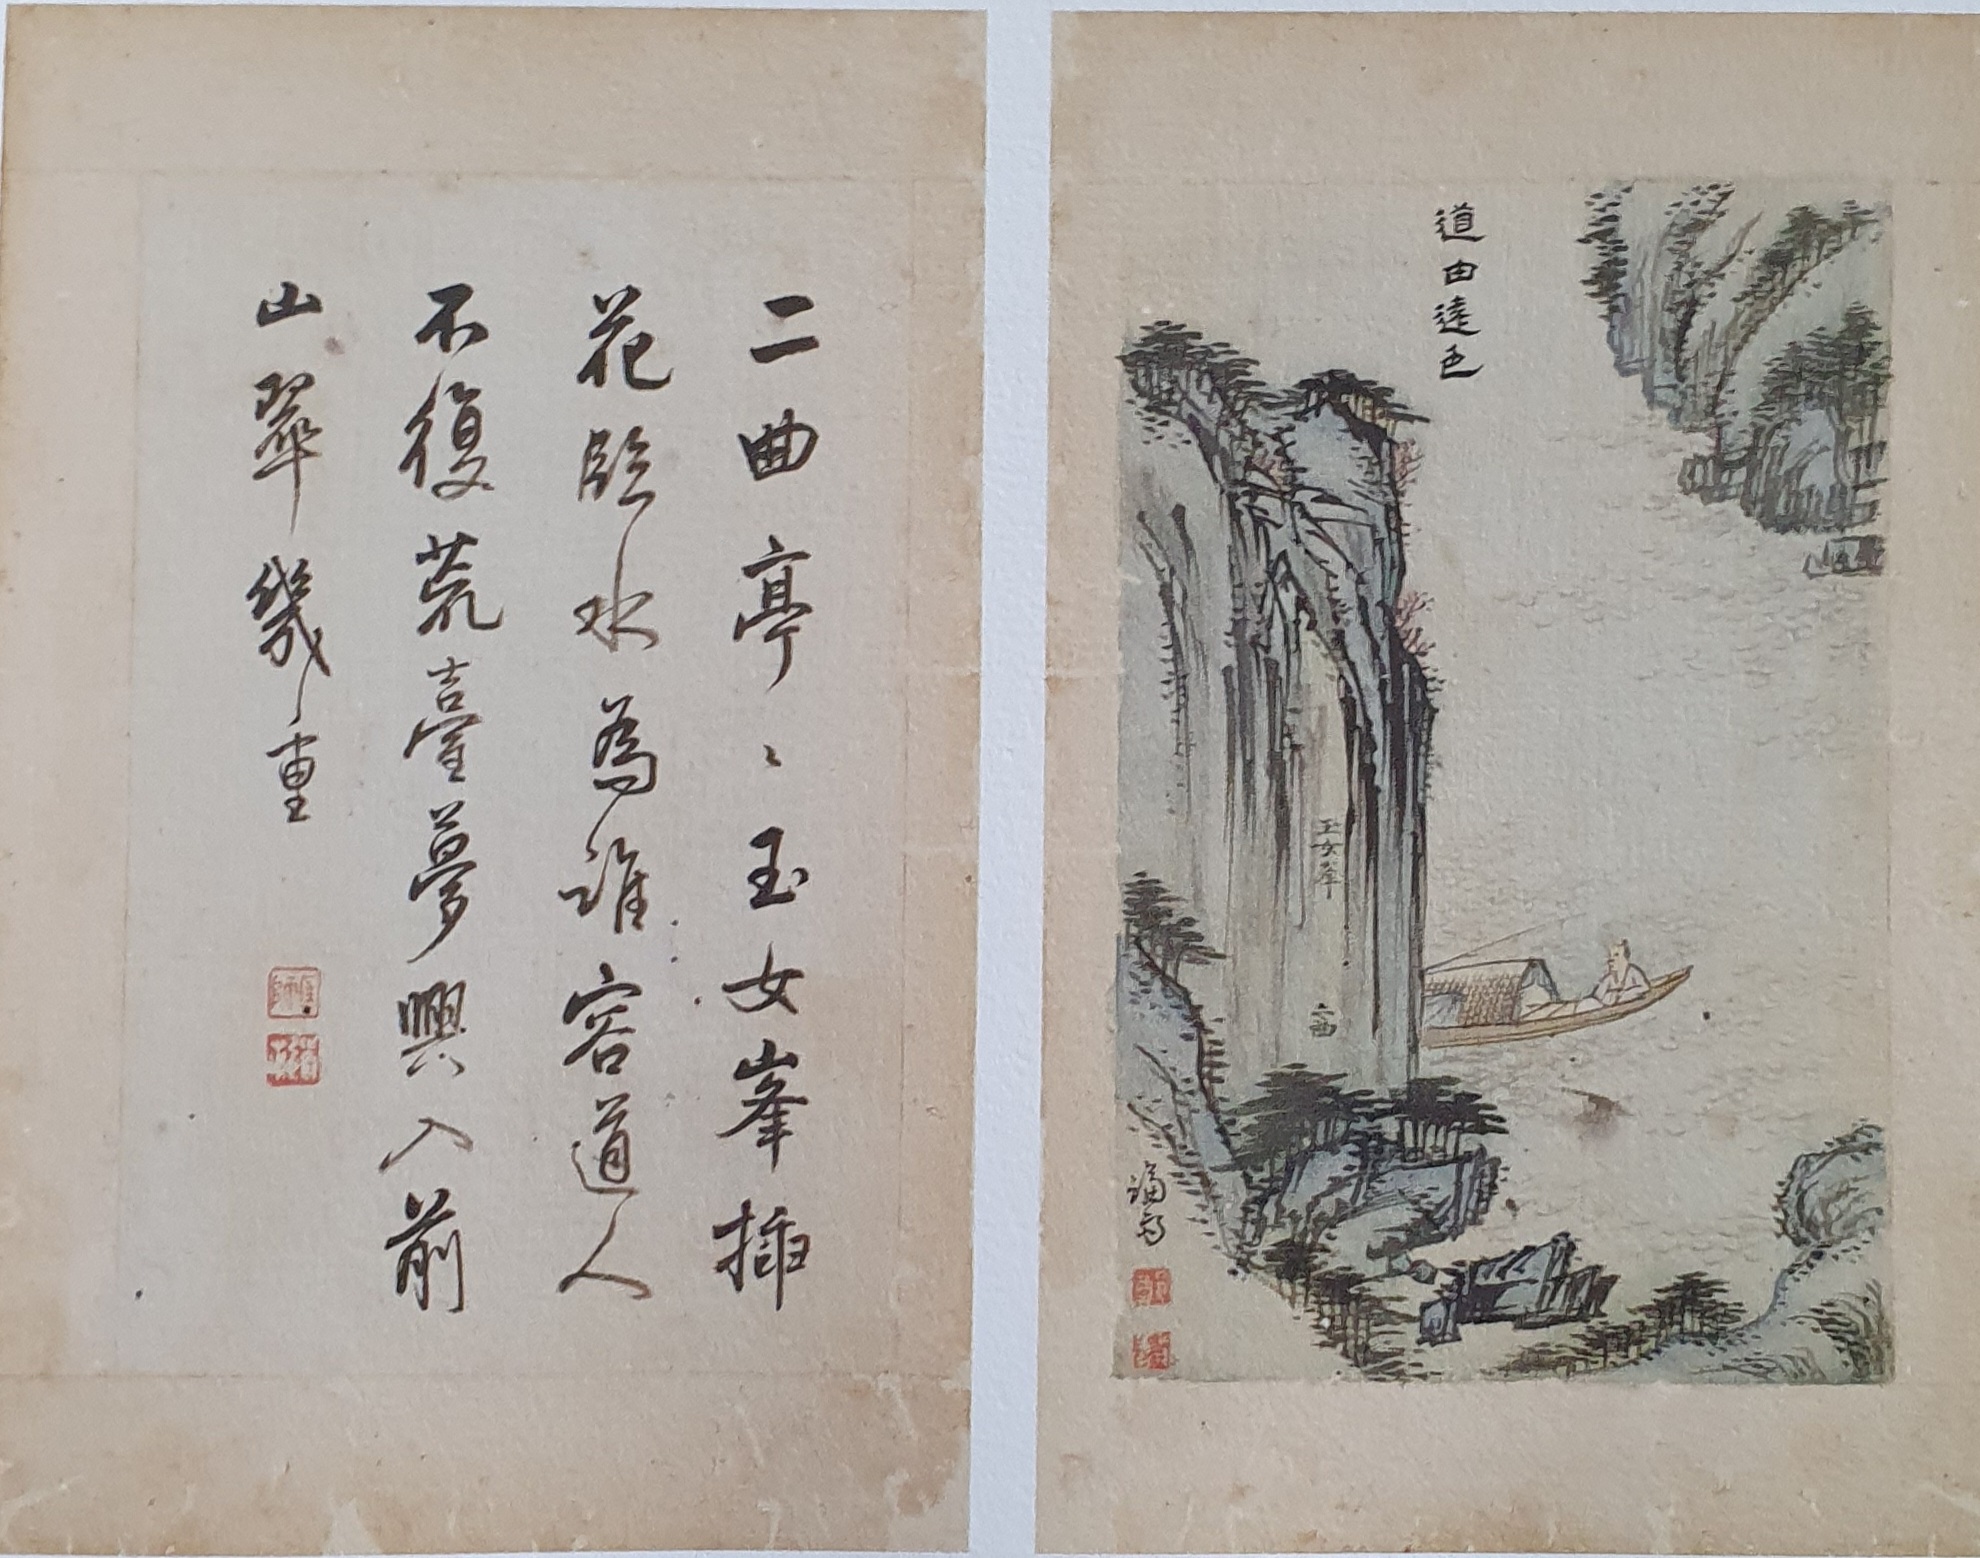 道由遠色
玉女峯
二曲
二曲亭〻玉女峯插
花臨水為誰容道人
不復荒臺夢興入前
山翠幾重